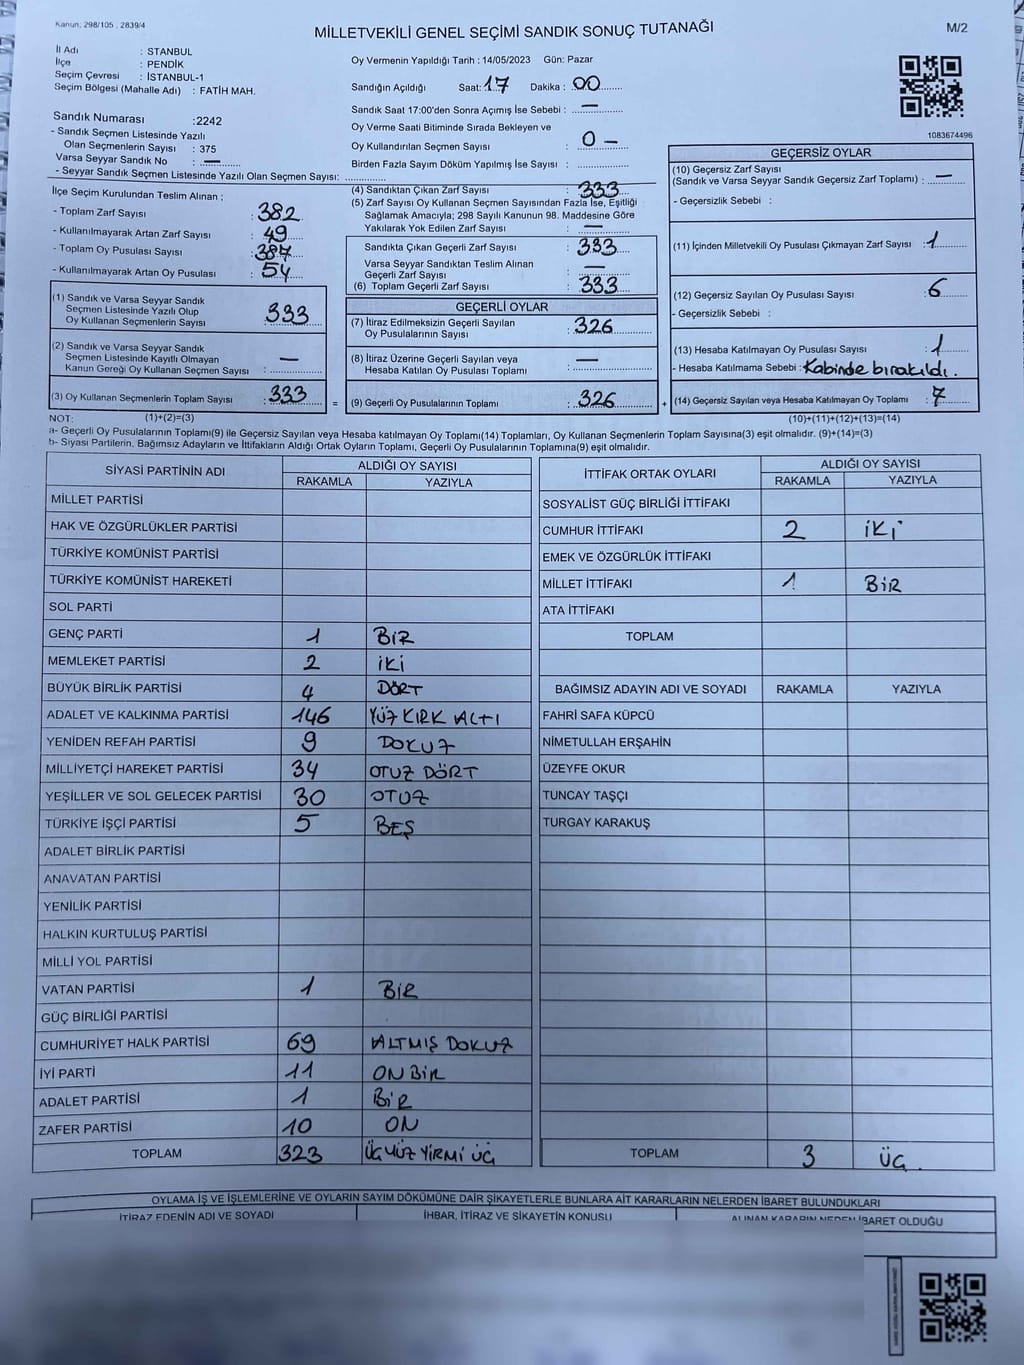 Kanun: 298/105 , 2839/4
MİLLETVEKİLİ GENEL SEÇİMİ SANDIK SONUÇ TUTANAĞI
M/2
İl Adı : STANBUL
İlçe : PENDİK
Seçim Çevresi : İSTANBUL-1
Seçim Bölgesi (Mahalle Adı) : FATİH MAH.
Oy Vermenin Yapıldığı Tarih : 14/05/2023 Gün: Pazar
Sandığın Açıldığı Saat: 17 Dakika : 00
Sandık Saat 17:00'den Sonra Açımış İse Sebebi : —
Oy Verme Saati Bitiminde Sırada Bekleyen ve
Oy Kullandırılan Seçmen Sayısı : 0 —
Birden Fazla Sayım Döküm Yapılmış İse Sayısı :
1083674496
Sandık Numarası :2242
- Sandık Seçmen Listesinde Yazılı
Olan Seçmenlerin Sayısı : 375
Varsa Seyyar Sandık No : —
- Seyyar Sandık Seçmen Listesinde Yazılı Olan Seçmen Sayısı:
İlçe Seçim Kurulundan Teslim Alınan ;
- Toplam Zarf Sayısı : 382
- Kullanılmayarak Artan Zarf Sayısı : 49
- Toplam Oy Pusulası Sayısı : 387
- Kullanılmayarak Artan Oy Pusulası : 54
(1) Sandık ve Varsa Seyyar Sandık
Seçmen Listesinde Yazılı Olup
Oy Kullanan Seçmenlerin Sayısı : 333
(2) Sandık ve Varsa Seyyar Sandık
Seçmen Listesinde Kayıtlı Olmayan
Kanun Gereği Oy Kullanan Seçmen Sayısı : —
(3) Oy Kullanan Seçmenlerin Toplam Sayısı : 333
(4) Sandıktan Çıkan Zarf Sayısı : 333
(5) Zarf Sayısı Oy Kullanan Seçmen Sayısından Fazla İse, Eşitliği
Sağlamak Amacıyla; 298 Sayılı Kanunun 98. Maddesine Göre
Yakılarak Yok Edilen Zarf Sayısı : —
Sandıkta Çıkan Geçerli Zarf Sayısı : 333
Varsa Seyyar Sandıktan Teslim Alınan
Geçerli Zarf Sayısı : —
(6) Toplam Geçerli Zarf Sayısı : 333
GEÇERLİ OYLAR
(7) İtiraz Edilmeksizin Geçerli Sayılan
Oy Pusulalarının Sayısı : 326
(8) İtiraz Üzerine Geçerli Sayılan veya
Hesaba Katılan Oy Pusulası Toplamı : —
= (9) Geçerli Oy Pusulalarının Toplamı : 326
GEÇERSİZ OYLAR
(10) Geçersiz Zarf Sayısı
(Sandık ve Varsa Seyyar Sandık Geçersiz Zarf Toplamı) : —
- Geçersizlik Sebebi :
(11) İçinden Milletvekili Oy Pusulası Çıkmayan Zarf Sayısı : 1
(12) Geçersiz Sayılan Oy Pusulası Sayısı : 6
- Geçersizlik Sebebi :
(13) Hesaba Katılmayan Oy Pusulası Sayısı : 1
- Hesaba Katılmama Sebebi : Kabinde bırakıldı.
+ (14) Geçersiz Sayılan veya Hesaba Katılmayan Oy Toplamı : 7
NOT: (1)+(2)=(3)
(10)+(11)+(12)+(13)=(14)
a- Geçerli Oy Pusulalarının Toplamı(9) ile Geçersiz Sayılan veya Hesaba katılmayan Oy Toplamı(14) Toplamları, Oy Kullanan Seçmenlerin Toplam Sayısına(3) eşit olmalıdır. (9)+(14)=(3)
b- Siyasi Partilerin, Bağımsız Adayların ve İttifakların Aldığı Ortak Oyların Toplamı, Geçerli Oy Pusulalarının Toplamına(9) eşit olmalıdır.
SİYASİ PARTİNİN ADI ALDIĞI OY SAYISI
RAKAMLA YAZIYLA
MİLLET PARTİSİ
HAK VE ÖZGÜRLÜKLER PARTİSİ
TÜRKİYE KOMÜNİST PARTİSİ
TÜRKİYE KOMÜNİST HAREKETİ
SOL PARTİ
GENÇ PARTİ 1 BİR
MEMLEKET PARTİSİ 2 İKİ
BÜYÜK BİRLİK PARTİSİ 4 DÖRT
ADALET VE KALKINMA PARTİSİ 146 YÜZ KIRK ALTI
YENİDEN REFAH PARTİSİ 9 DOKUZ
MİLLİYETÇİ HAREKET PARTİSİ 34 OTUZ DÖRT
YEŞİLLER VE SOL GELECEK PARTİSİ 30 OTUZ
TÜRKİYE İŞÇİ PARTİSİ 5 BEŞ
ADALET BİRLİK PARTİSİ
ANAVATAN PARTİSİ
YENİLİK PARTİSİ
HALKIN KURTULUŞ PARTİSİ
MİLLİ YOL PARTİSİ
VATAN PARTİSİ 1 BİR
GÜÇ BİRLİĞİ PARTİSİ
CUMHURİYET HALK PARTİSİ 69 ALTMIŞ DOKUZ
İYİ PARTİ 11 ON BİR
ADALET PARTİSİ 1 BİR
ZAFER PARTİSİ 10 ON
TOPLAM 323 ÜÇ YÜZ YİRMİ ÜÇ
İTTİFAK ORTAK OYLARI ALDIĞI OY SAYISI
RAKAMLA YAZIYLA
SOSYALİST GÜÇ BİRLİĞİ İTTİFAKI
CUMHUR İTTİFAKI 2 İKİ
EMEK VE ÖZGÜRLÜK İTTİFAKI
MİLLET İTTİFAKI 1 BİR
ATA İTTİFAKI
TOPLAM
BAĞIMSIZ ADAYIN ADI VE SOYADI RAKAMLA YAZIYLA
FAHRİ SAFA KÜPCÜ
NİMETULLAH ERŞAHİN
ÜZEYFE OKUR
TUNCAY TAŞÇI
TURGAY KARAKUŞ
TOPLAM 3 ÜÇ.
OYLAMA İŞ VE İŞLEMLERİNE VE OYLARIN SAYIM DÖKÜMÜNE DAİR ŞİKAYETLERLE BUNLARA AİT KARARLARIN NELERDEN İBARET BULUNDUKLARI
İTİRAZ EDENİN ADI VE SOYADI İHBAR, İTİRAZ VE ŞİKAYETİN KONUSU ALINAN KARARIN NEDEN İBARET OLDUĞU